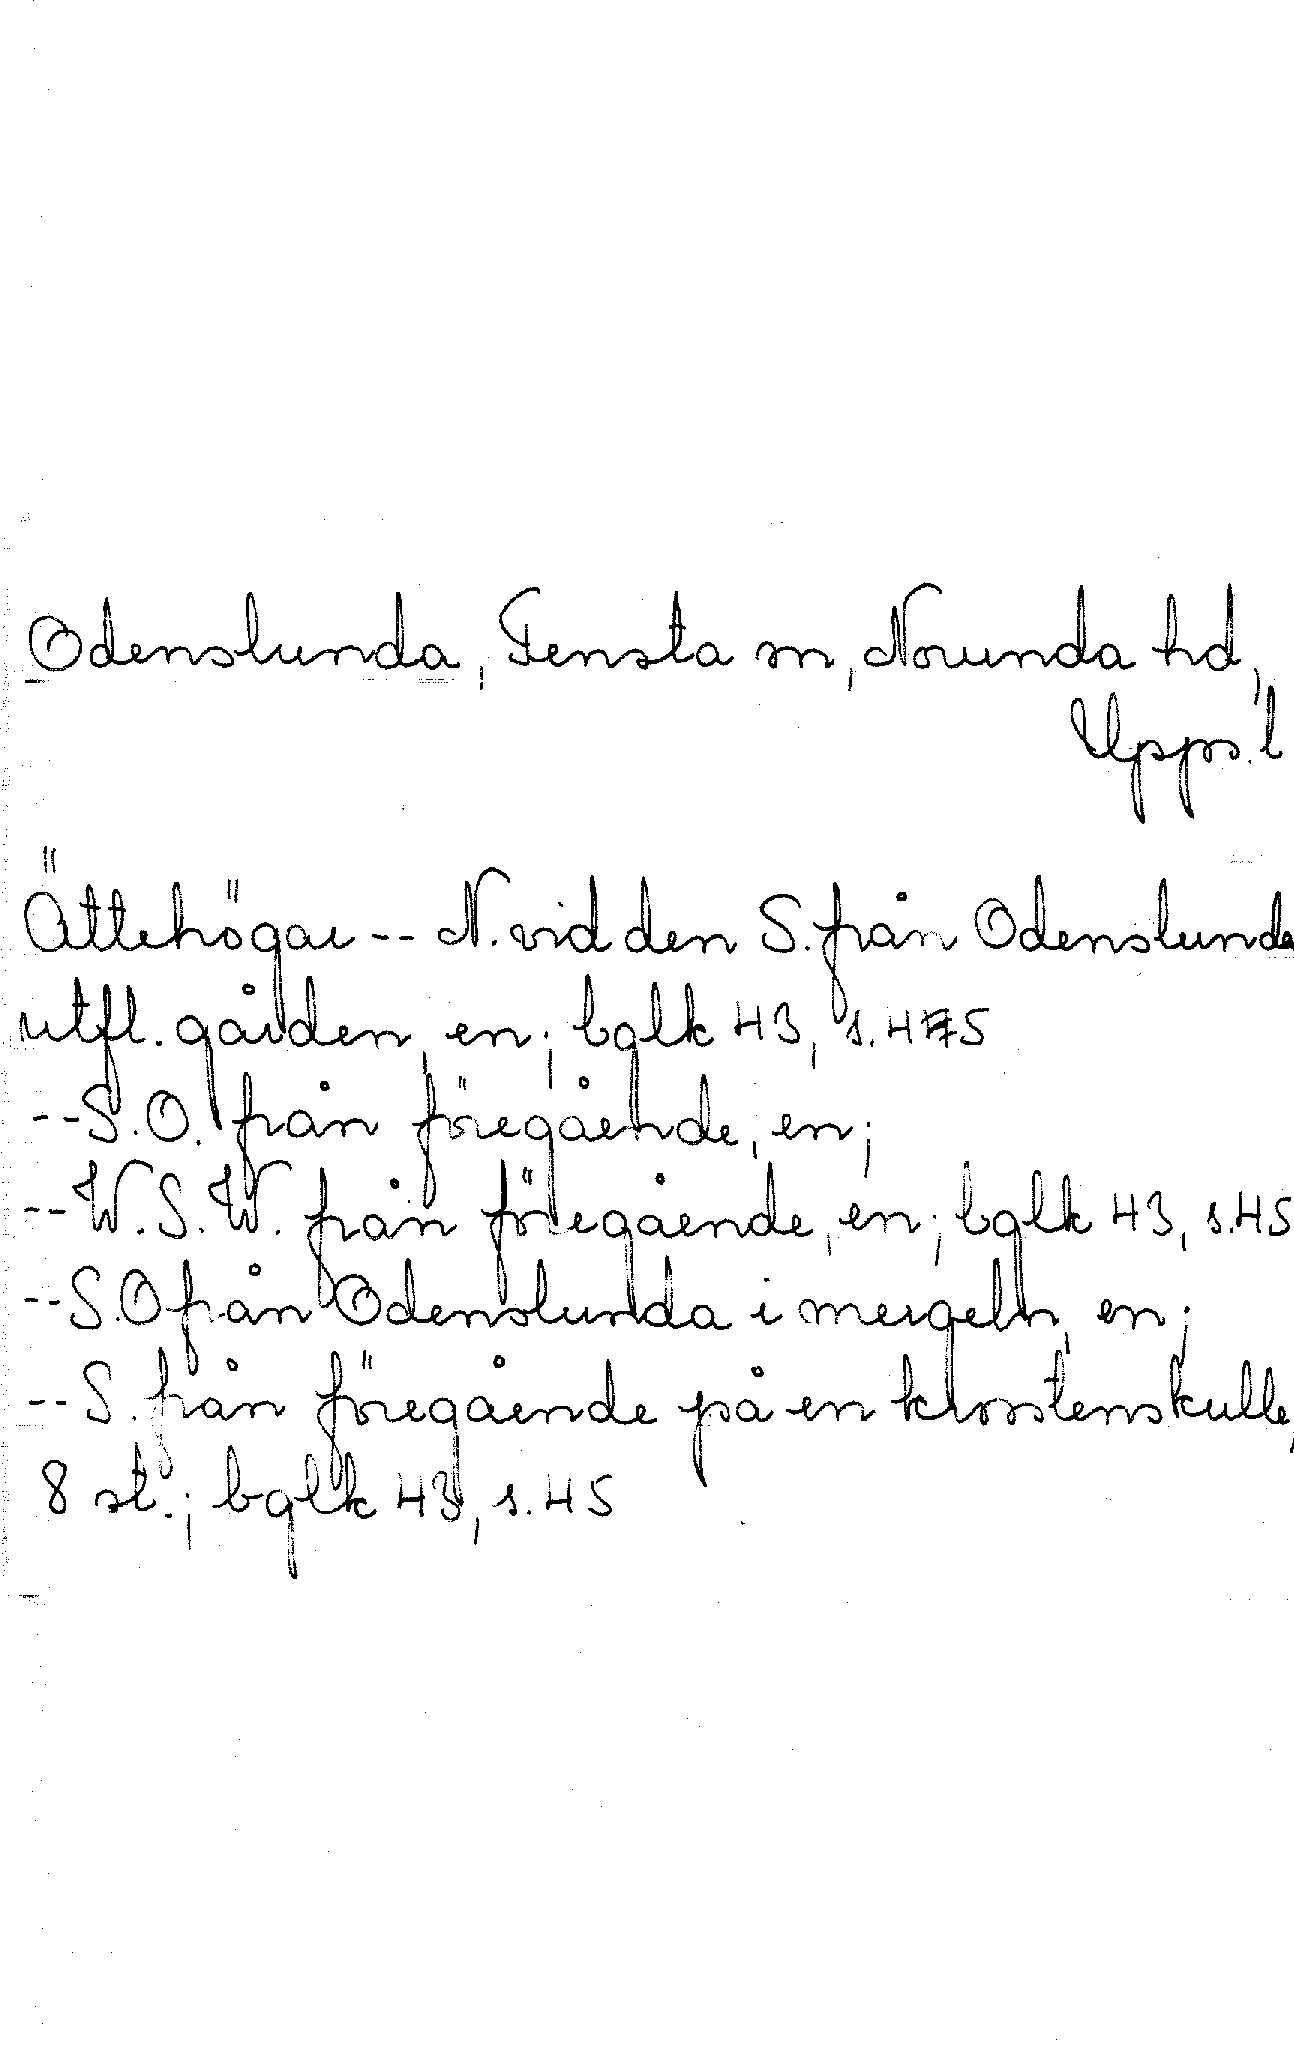 Odenslunda, Tensta sn, Norunda hd,
Upps.l
Ättehögar -- N. vid den S. från Odenslunda
utfl. gården, en; bglk 43, s. 45
-- S.O. från föregående, en;
-- W.S.W. från föregående, en; bglk 43, s. 45
-- S.O från Odenslunda i mergeln, en;
-- S. från föregående på en krosstenskulle,
8 st.; bglk 43, s. 45